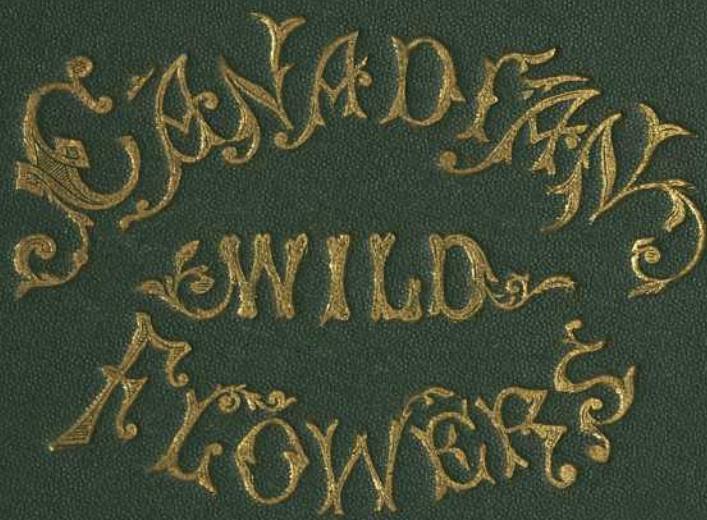 CANADIAN
WILD
FLOWERS